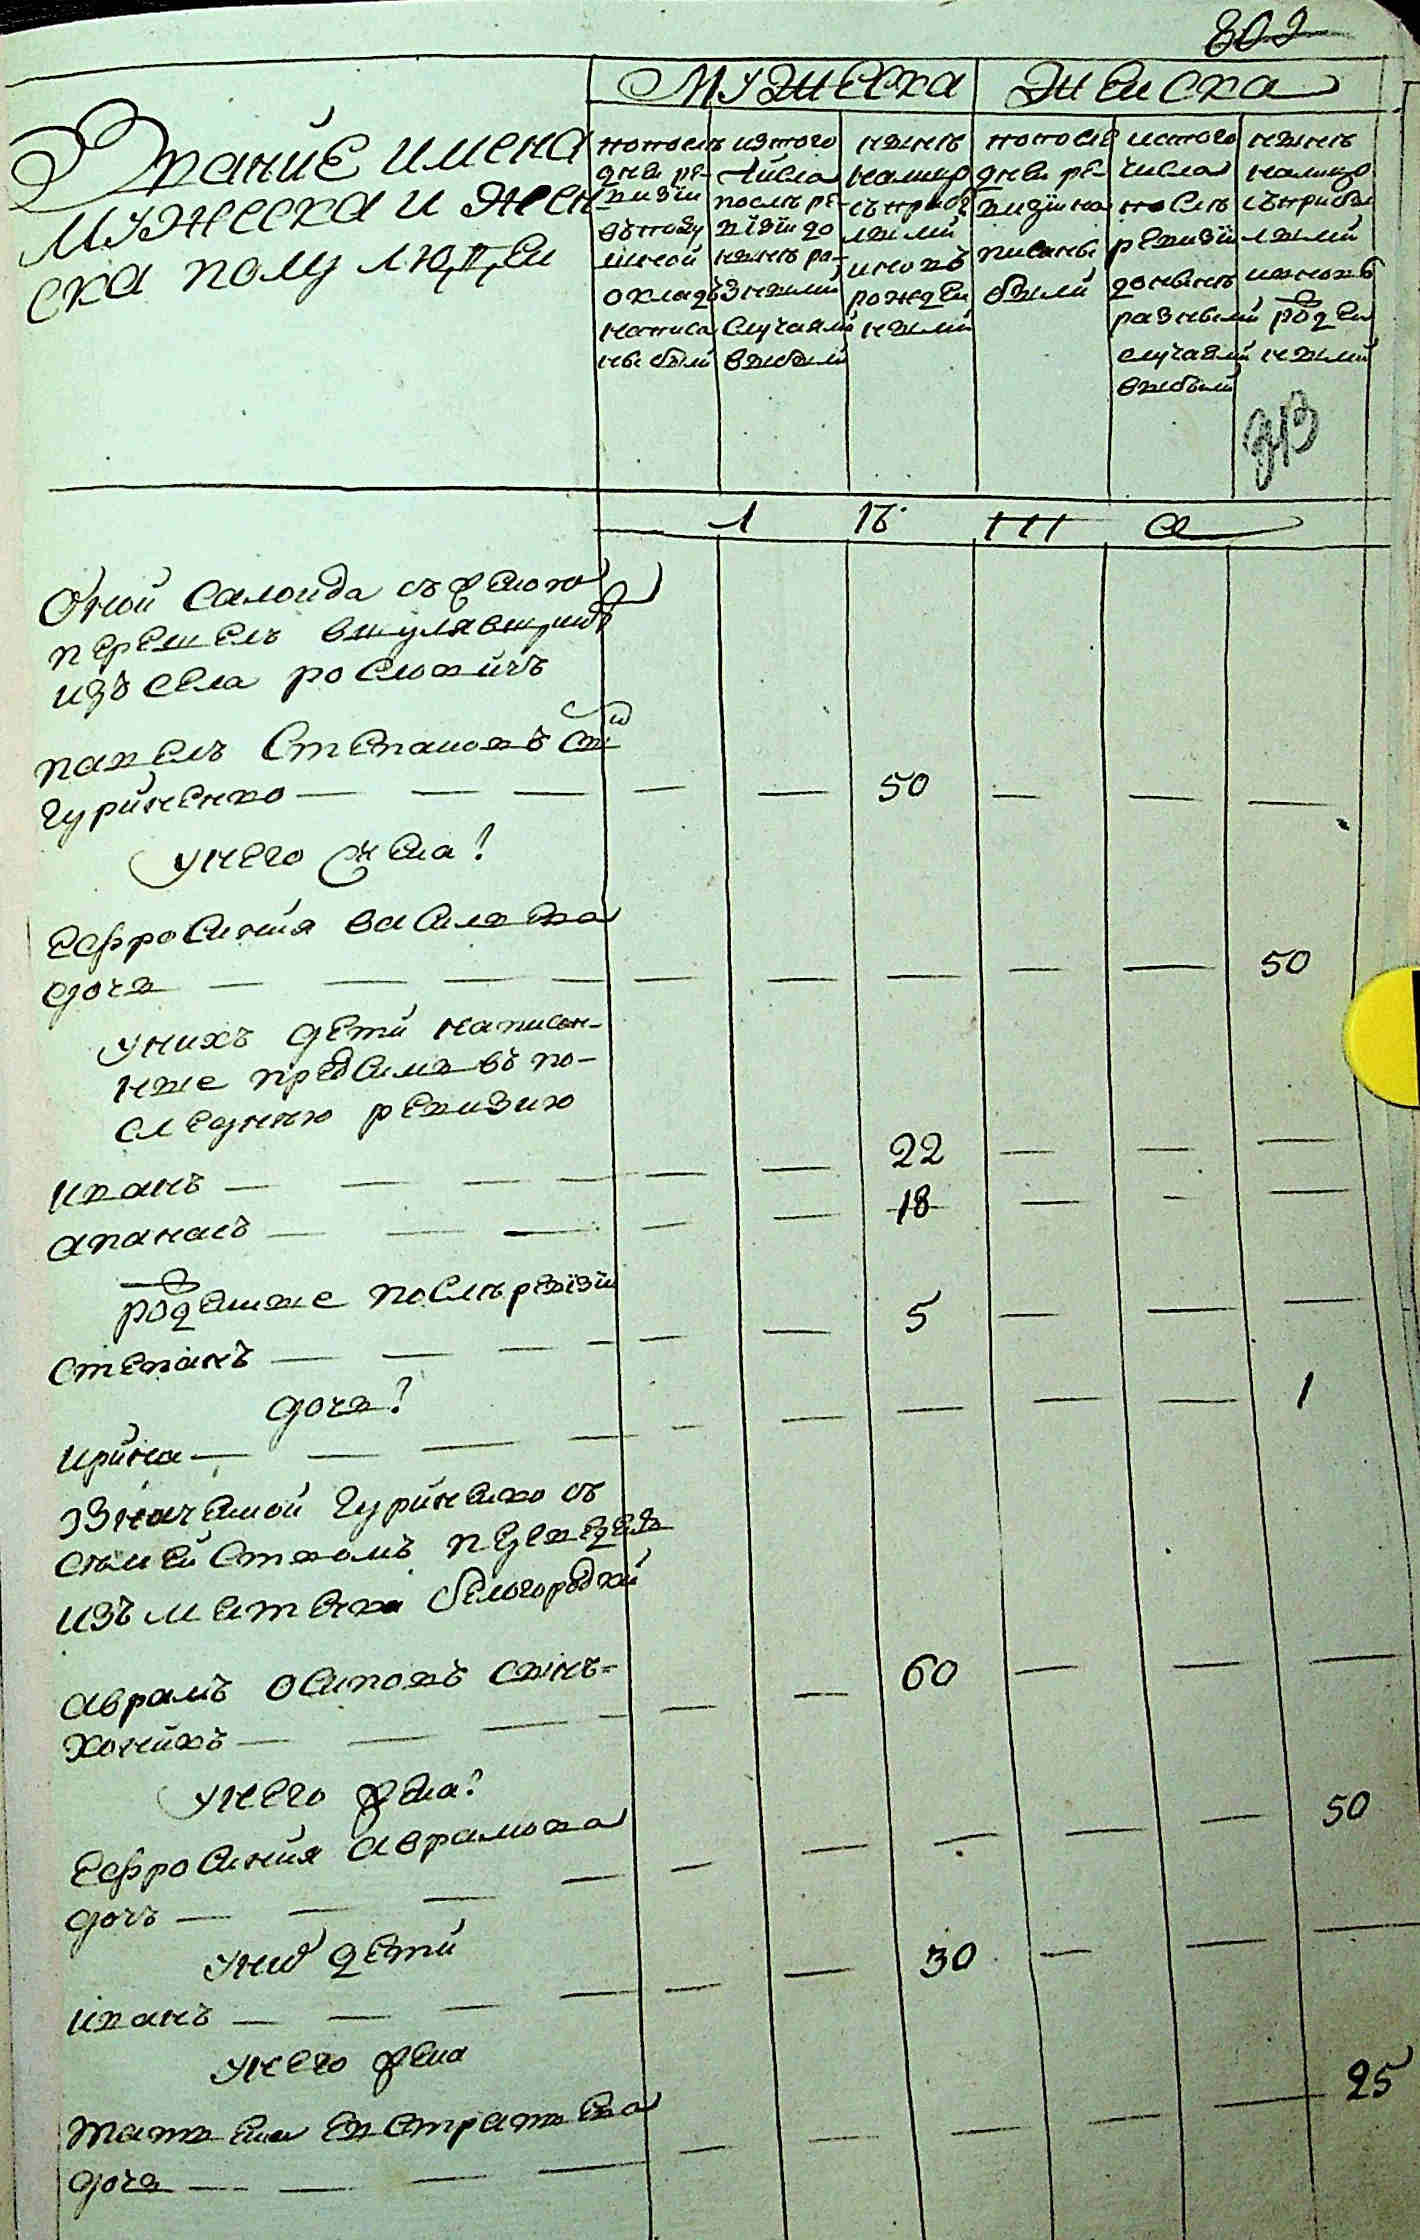 802
Звание имена
мужеска и жен
ска полу людей
мужеска женска
попослѣ
дней ре-
визіи
в подуш
шной
окладъ
написа
ны были
изтого
числа
послѣ ре-
візіи до
нынѣ ра-
зными
случаями
выбыли
нынѣ
налицо
съ прибы
лыми
и новъ
рожден
ными
попослѣ
дней ре-
визіи на
писаны
были
истого
числа
послѣ
ревизіи
донынѣ
разными
случаями
выбыли
нынѣ
налицо
съприбы
лыми
ивновь
рожден
ными
л ѣ т а
Оной Саломда съ женою
перешелъ
изъ села рословичъ
павелъ Степановъ сынъ
гуриненко — — — — — 50 — — —
унего жена!
Еефросиния василева
дочь — — — — — — — — — 50
унихъ дети написан-
ные предсимъ въ по-
следнюю ревизию
иванъ — — — — — — 22 — — —
апанасъ — — — — — 18 — — —
рожденные послѣ ревізіи
степанъ — — — — — — 5 — — —
дочь?
ирина — — — — — — — — — 1
значеной гуриненко съ
съмействомъ переведен
изъ местечка белогородки
аврамъ осиповъ сынъ=
хоникъ — — — — — 60 — — —
унего жена?
Еефросиния аврамова
дочъ — — — — — — — — — 50
унихъ дети
иванъ — — — — — — 30 — — —
унего жена
татьяна евстратьева
дочь — — — — — — — — — 25